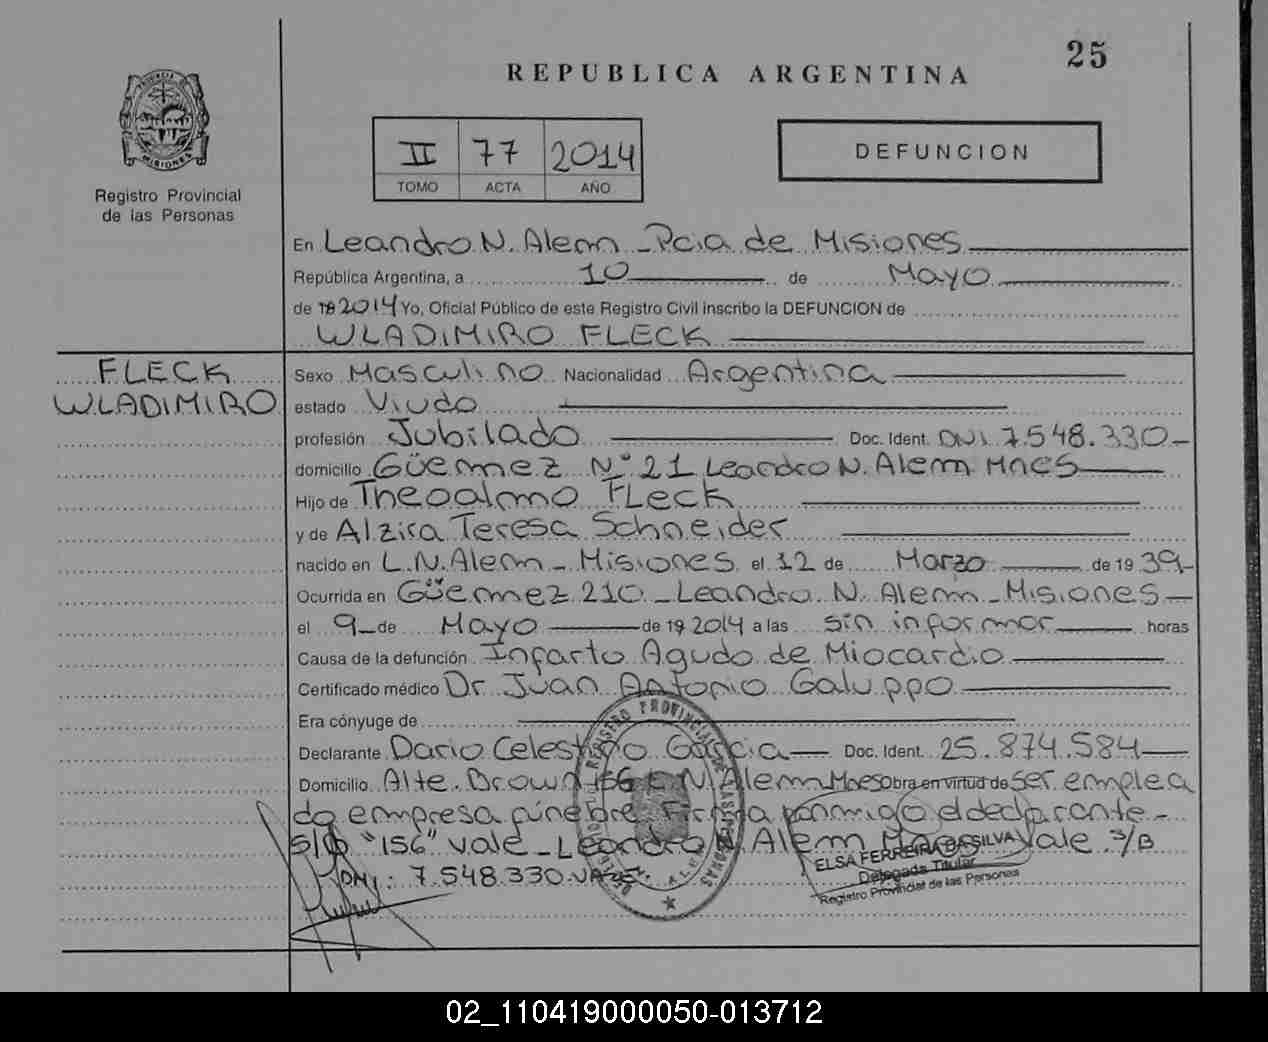 25
REPUBLICA ARGENTINA
Registro Provincial
de las Personas
II 77 2014
TOMO ACTA AÑO
DEFUNCION
En Leandro N. Alem - Pcia de Misiones
República Argentina, a 10 de Mayo
de 2014 Yo, Oficial Público de este Registro Civil inscribo la DEFUNCION de
WLADIMIRO FLECK
FLECK
WLADIMIRO
Sexo Masculino Nacionalidad Argentina
estado Viudo
profesión Jubilado Doc. Ident. DNI 7.548.330-
domicilio Güemez N° 21 Leandro N. Alem Mnes
Hijo de Theoalmo Fleck
y de Alzira Teresa Schneider
nacido en L.N. Alem - Misiones el 12 de Marzo de 1939-
Ocurrida en Güemez 210 - Leandro N. Alem - Misiones
el 9 de Mayo de 19 2014 a las sin informar horas
Causa de la defunción Infarto Agudo de Miocardio
Certificado médico Dr. Juan Antonio Galuppo
Era cónyuge de
Declarante Dario Celestino Garcia Doc. Ident. 25.874.584
Domicilio Alte. Brown 156 L N. Alem Mnes Obra en virtud de ser emplea
do empresa fúnebre Firma conmigo el declarante -
"156" vale - Leandro N. Alem Mnes Vale S/B
DNI: 7.548.330 vale
REGISTRO PROVINCIAL DE LAS PERSONAS
ELSA FERREIRA DA SILVA
Delegada Titular
Registro Provincial de las Personas
02_110419000050-013712